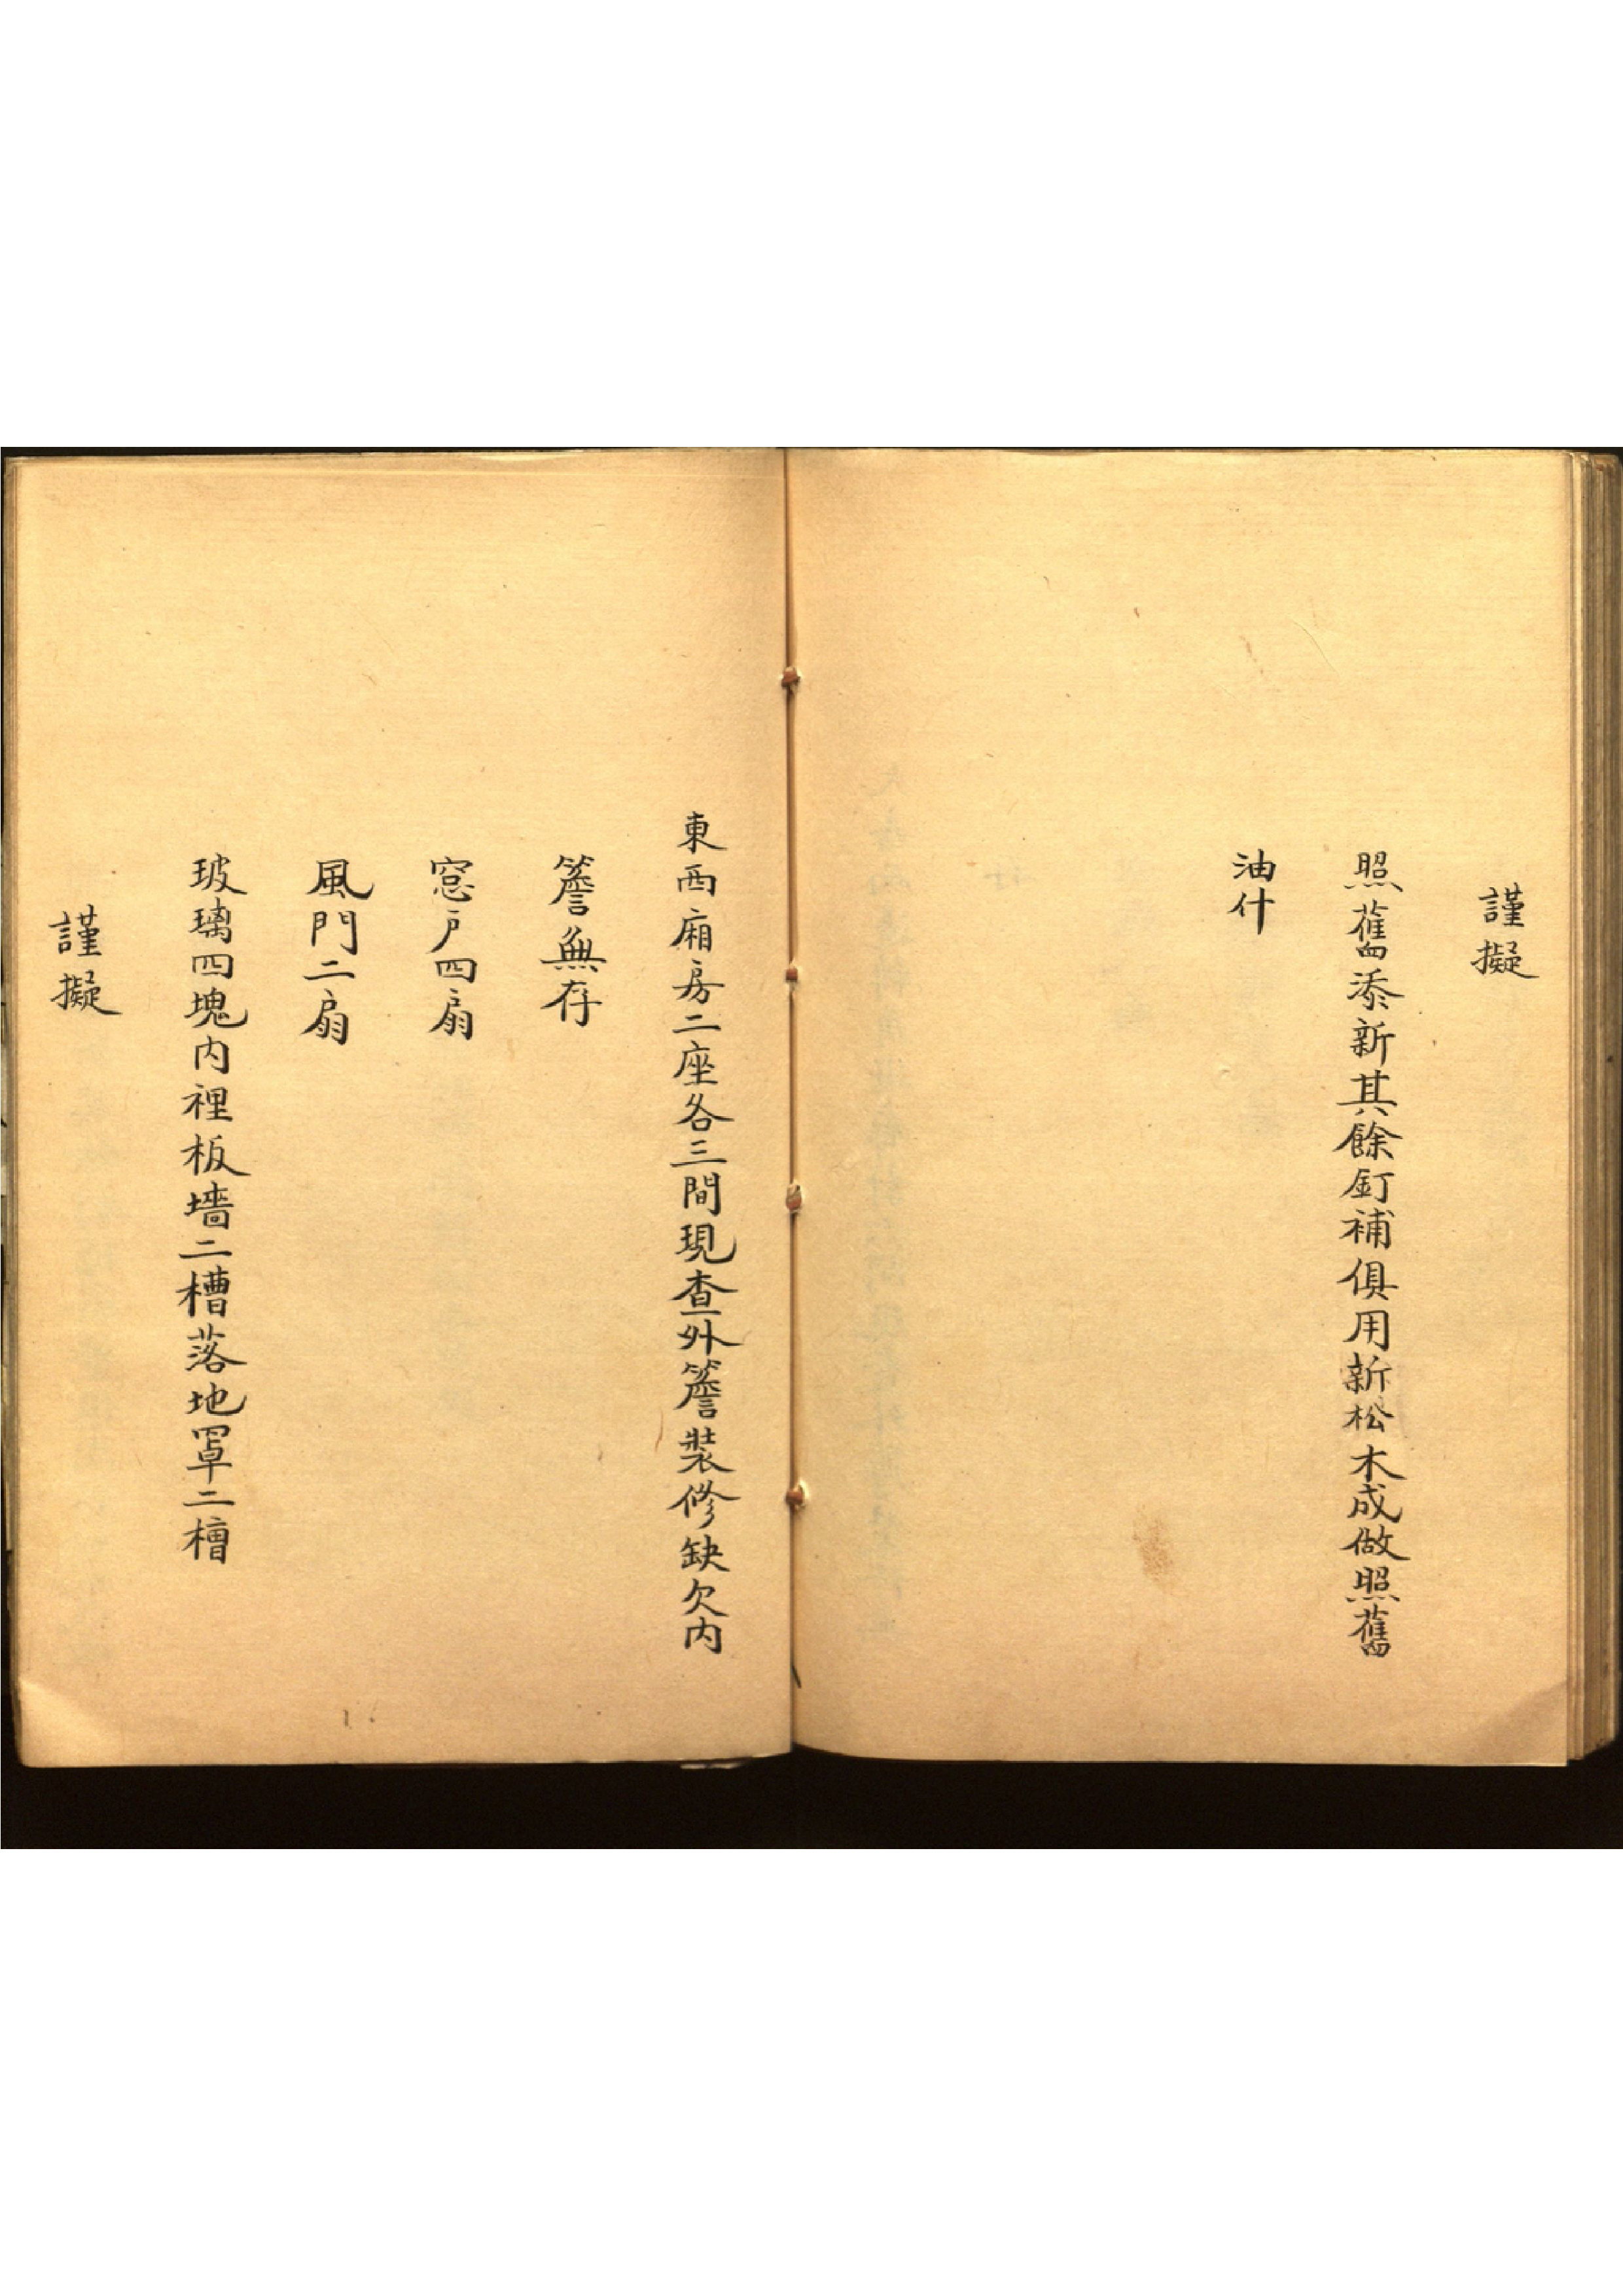 謹擬
照舊添新其餘釘補俱用新松木成做照舊
油什
東西廂房二座各三間現查外簷裝修缺欠内
簷無存
窓戶四扇
風門二扇
玻璃四塊内裡板墻二槽落地罩二槽
謹擬